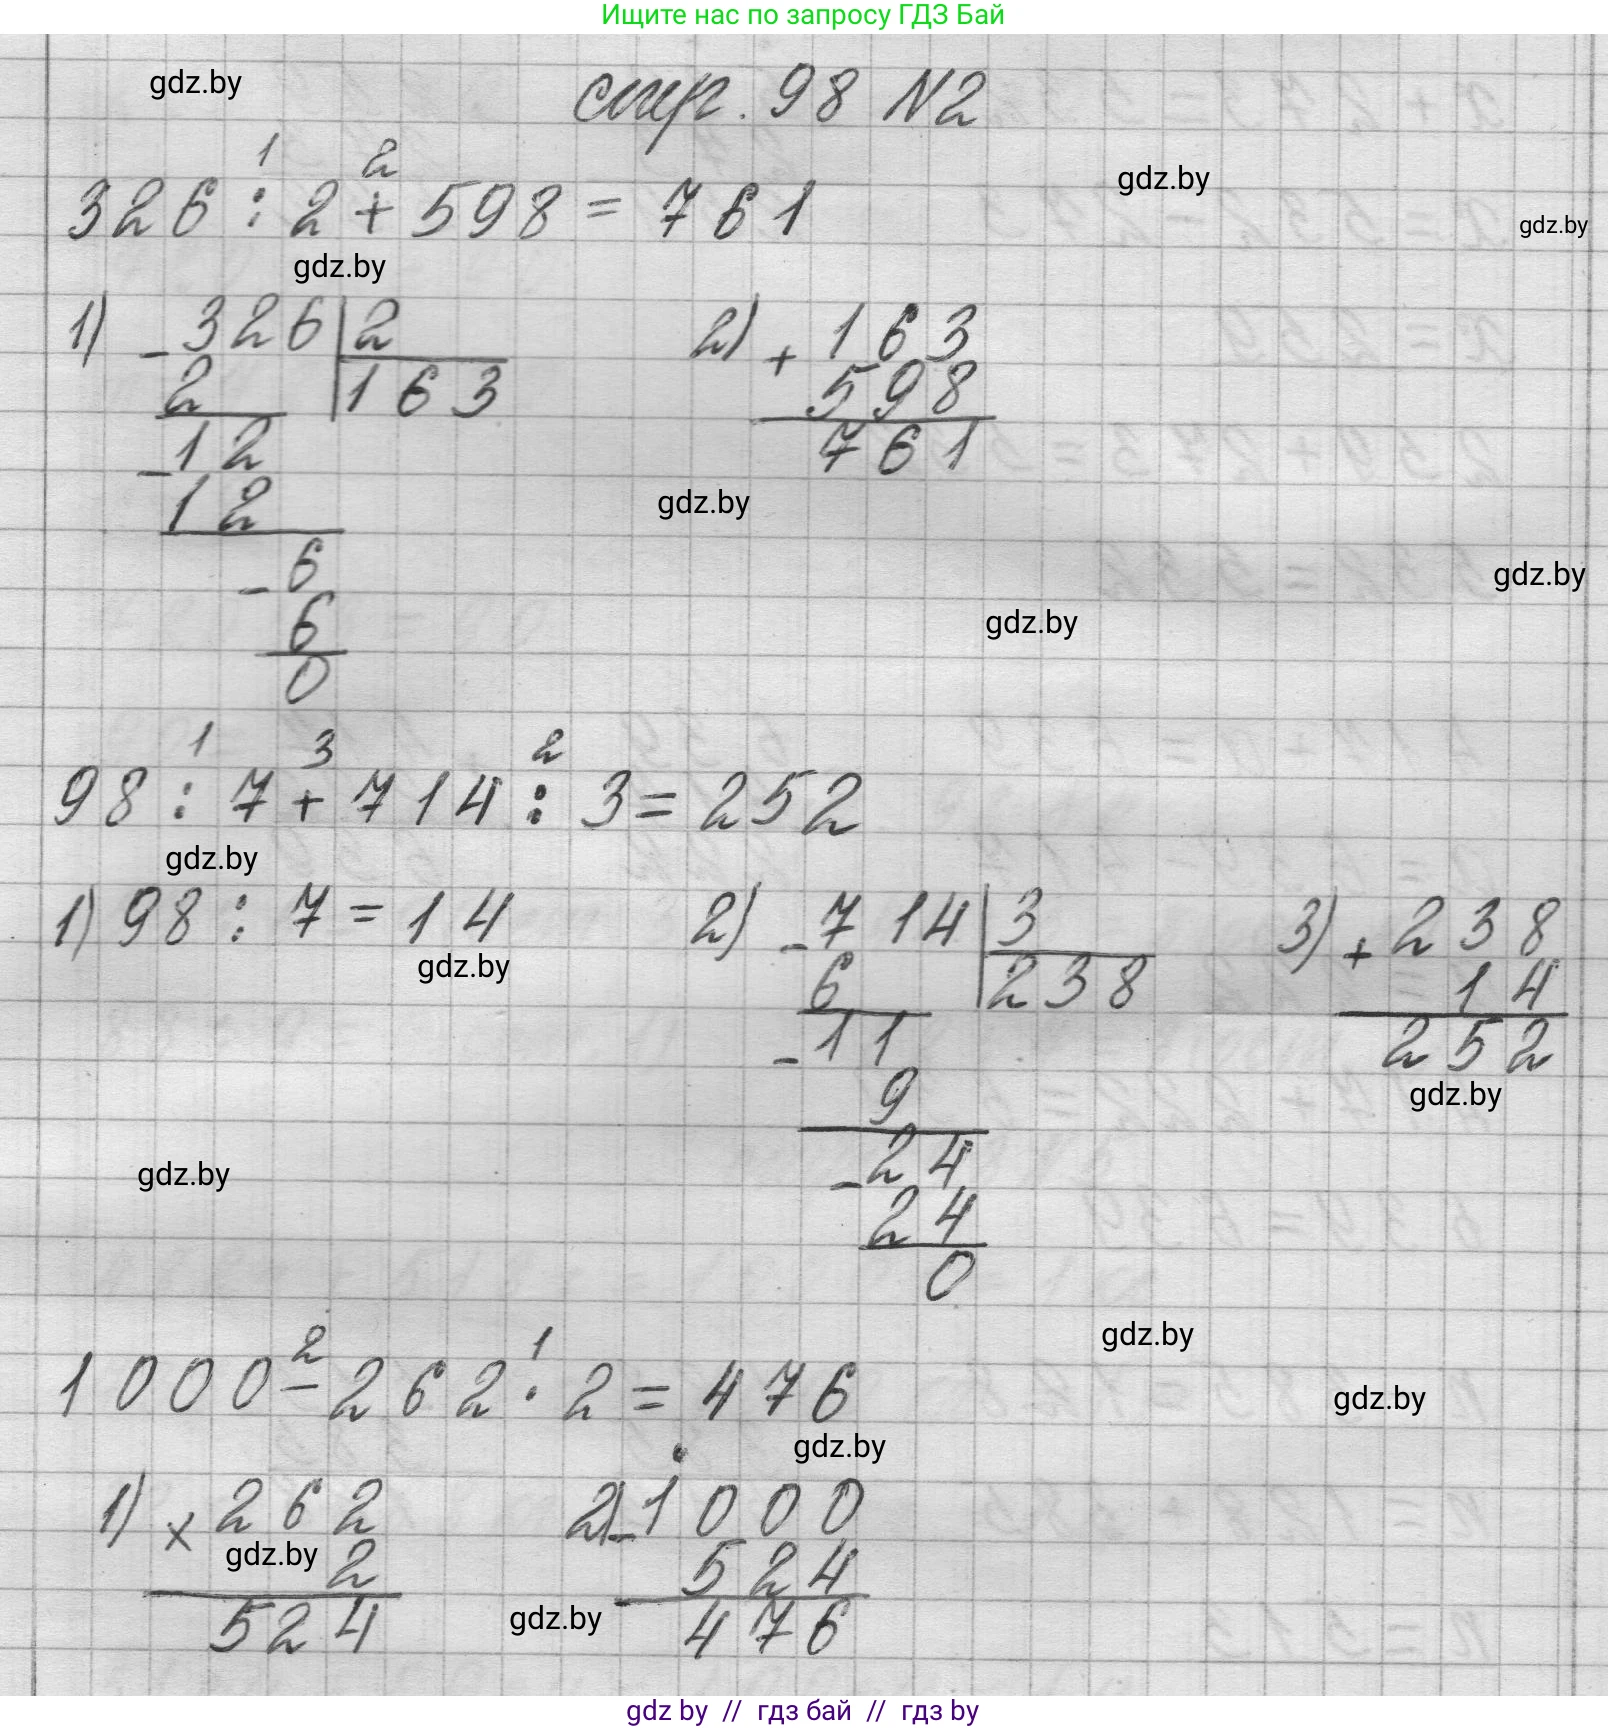 Ищите нас по запросу ГДЗ Бай
gdz.by
стр. 98 №2
gdz.by
1 2
326 : 2 + 598 = 761
gdz.by
gdz.by
1) - 326 | 2
2 163
- 12
12
- 6
6
0
2) + 163
598
761
gdz.by
gdz.by
gdz.by
1 3 2
98 : 7 + 714 : 3 = 252
gdz.by
1) 98 : 7 = 14
gdz.by
2) - 714 | 3
6 238
- 11
9
- 24
24
0
3) + 238
14
252
gdz.by
gdz.by
gdz.by
2 1
1000 - 262 · 2 = 476
gdz.by
gdz.by
1) × 262
2
524
gdz.by
2) - 1000
524
476
gdz.by
gdz by // гдз бай // гдз by